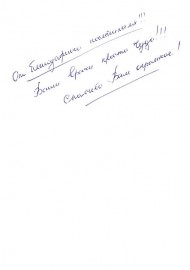 От благодарных посетителей!!!
Ваши врачи просто чудо!!!
Спасибо Вам огромное!